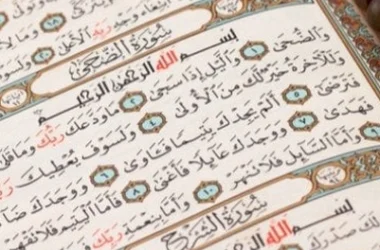 رَبِّهِ الْأَعْلَى
سُورَةُ الضُّحَى
بِسْمِ اللَّهِ الرَّحْمَنِ الرَّحِيمِ
وَالضُّحَى ١ وَاللَّيْلِ إِذَا سَجَى ٢ مَا وَدَّعَكَ رَبُّكَ وَمَا قَلَى
وَلَلْآخِرَةُ خَيْرٌ لَكَ مِنَ الْأُولَى ٤ وَلَسَوْفَ يُعْطِيكَ رَبُّكَ
فَتَرْضَى ٥ أَلَمْ يَجِدْكَ يَتِيمًا فَآوَى ٦ وَوَجَدَكَ ضَا
فَهَدَى ٧ وَوَجَدَكَ عَائِلًا فَأَغْنَى ٨ فَأَمَّا الْيَتِيمَ فَلَا تَقْهَرْ
٩ وَأَمَّا السَّائِلَ فَلَا تَنْهَرْ وَأَمَّا بِنِعْمَةِ رَبِّكَ
سُورَةُ الشَّرْحِ
بِسْمِ اللَّهِ